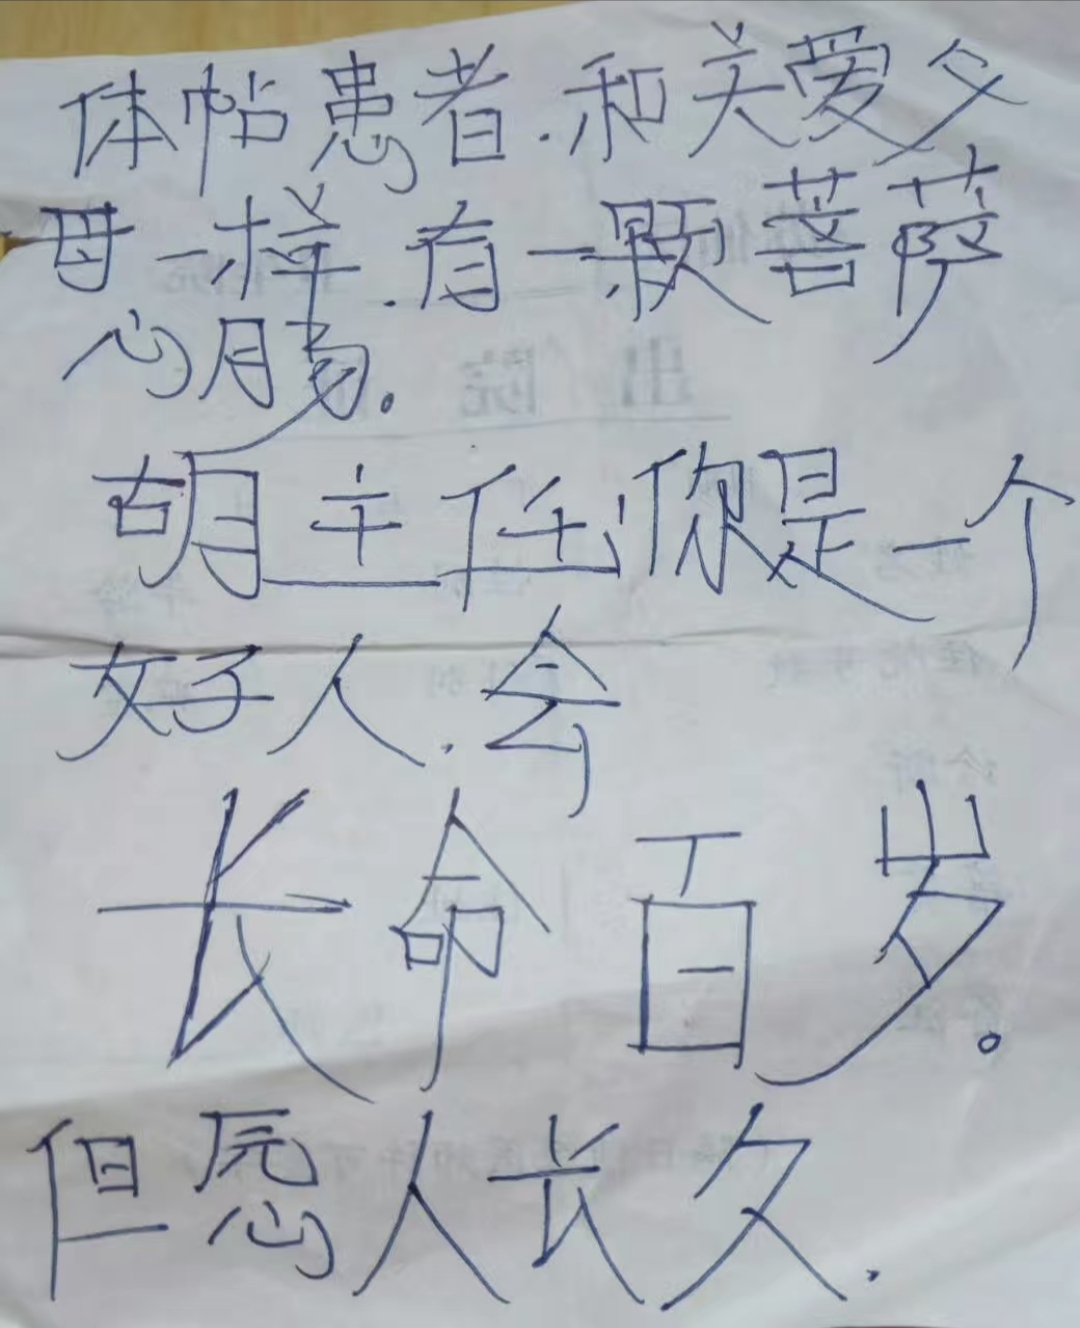 体帖患者.和关爱父
母一样.有一颗菩萨
心肠。
胡主任你是一个
好人.会
长命百岁。
但愿人长久.
出院